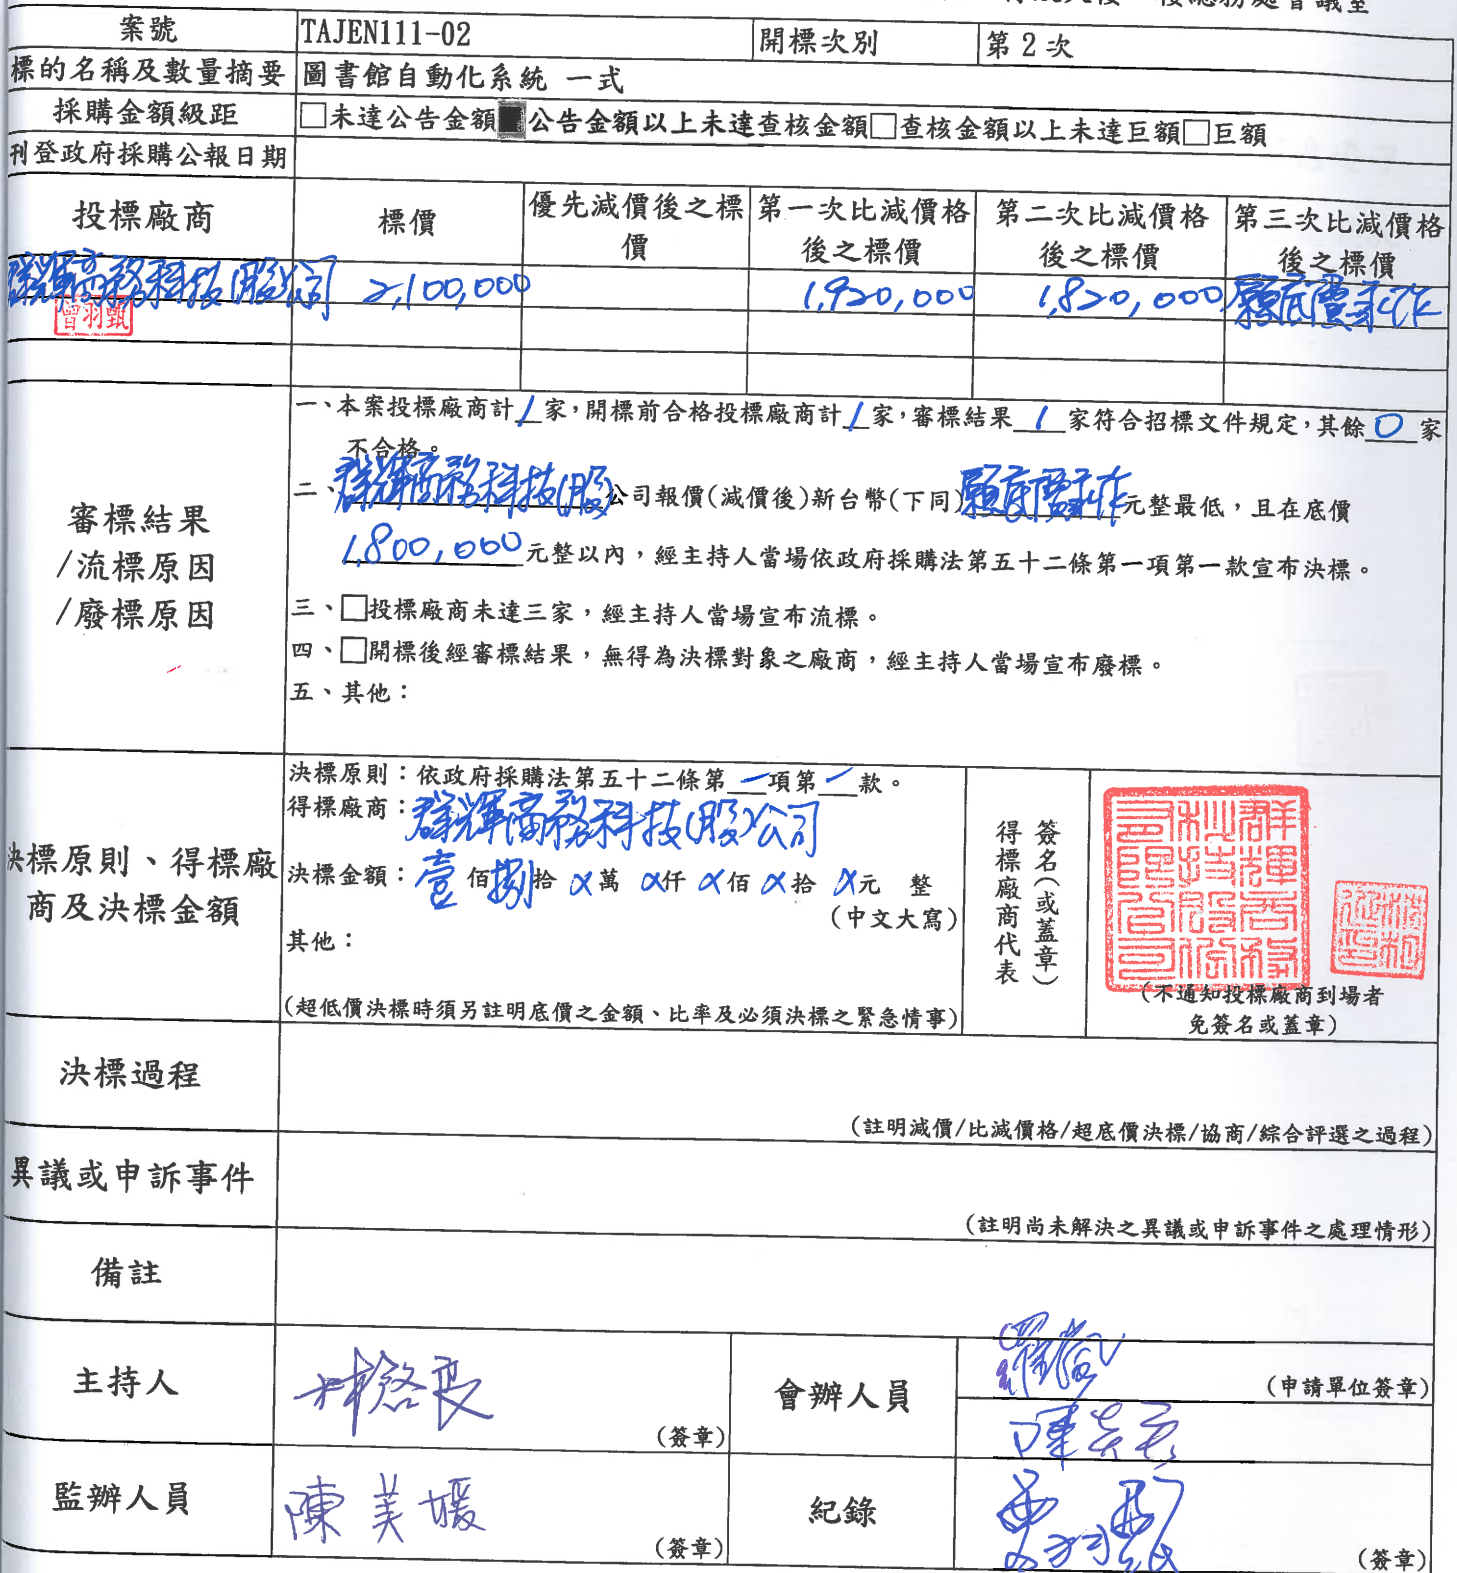 案號 TAJEN111-02 開標次別 第 2 次
標的名稱及數量摘要 圖書館自動化系統 一式
採購金額級距 □未達公告金額■公告金額以上未達查核金額□查核金額以上未達巨額□巨額
刊登政府採購公報日期
投標廠商 標價 優先減價後之標價 第一次比減價格後之標價 第二次比減價格後之標價 第三次比減價格後之標價
群輝商務科技(股)公司 2,100,000 1,920,000 1,820,000 願底價承作
曾羽甄
審標結果
/流標原因
/廢標原因
一、本案投標廠商計1家,開標前合格投標廠商計1家,審標結果1家符合招標文件規定,其餘0家
不合格。
二、群輝商務科技(股)公司報價(減價後)新台幣(下同)願底價承作元整最低,且在底價
1,800,000元整以內,經主持人當場依政府採購法第五十二條第一項第一款宣布決標。
三、□投標廠商未達三家,經主持人當場宣布流標。
四、□開標後經審標結果,無得為決標對象之廠商,經主持人當場宣布廢標。
五、其他:
決標原則、得標廠
商及決標金額
決標原則:依政府採購法第五十二條第一項第一款。
得標廠商:群輝商務科技(股)公司
決標金額:壹佰捌拾X萬X仟X佰X拾X元 整
(中文大寫)
其他:
(超低價決標時須另註明底價之金額、比率及必須決標之緊急情事)
得標廠商代表
簽名(或蓋章)
群輝商務科技股份有限公司
(不通知投標廠商到場者
免簽名或蓋章)
決標過程
(註明減價/比減價格/超底價決標/協商/綜合評選之過程)
異議或申訴事件
(註明尚未解決之異議或申訴事件之處理情形)
備註
主持人 林啓良 (簽章) 會辦人員 (申請單位簽章)
監辦人員 陳美媛 (簽章) 紀錄 (簽章)